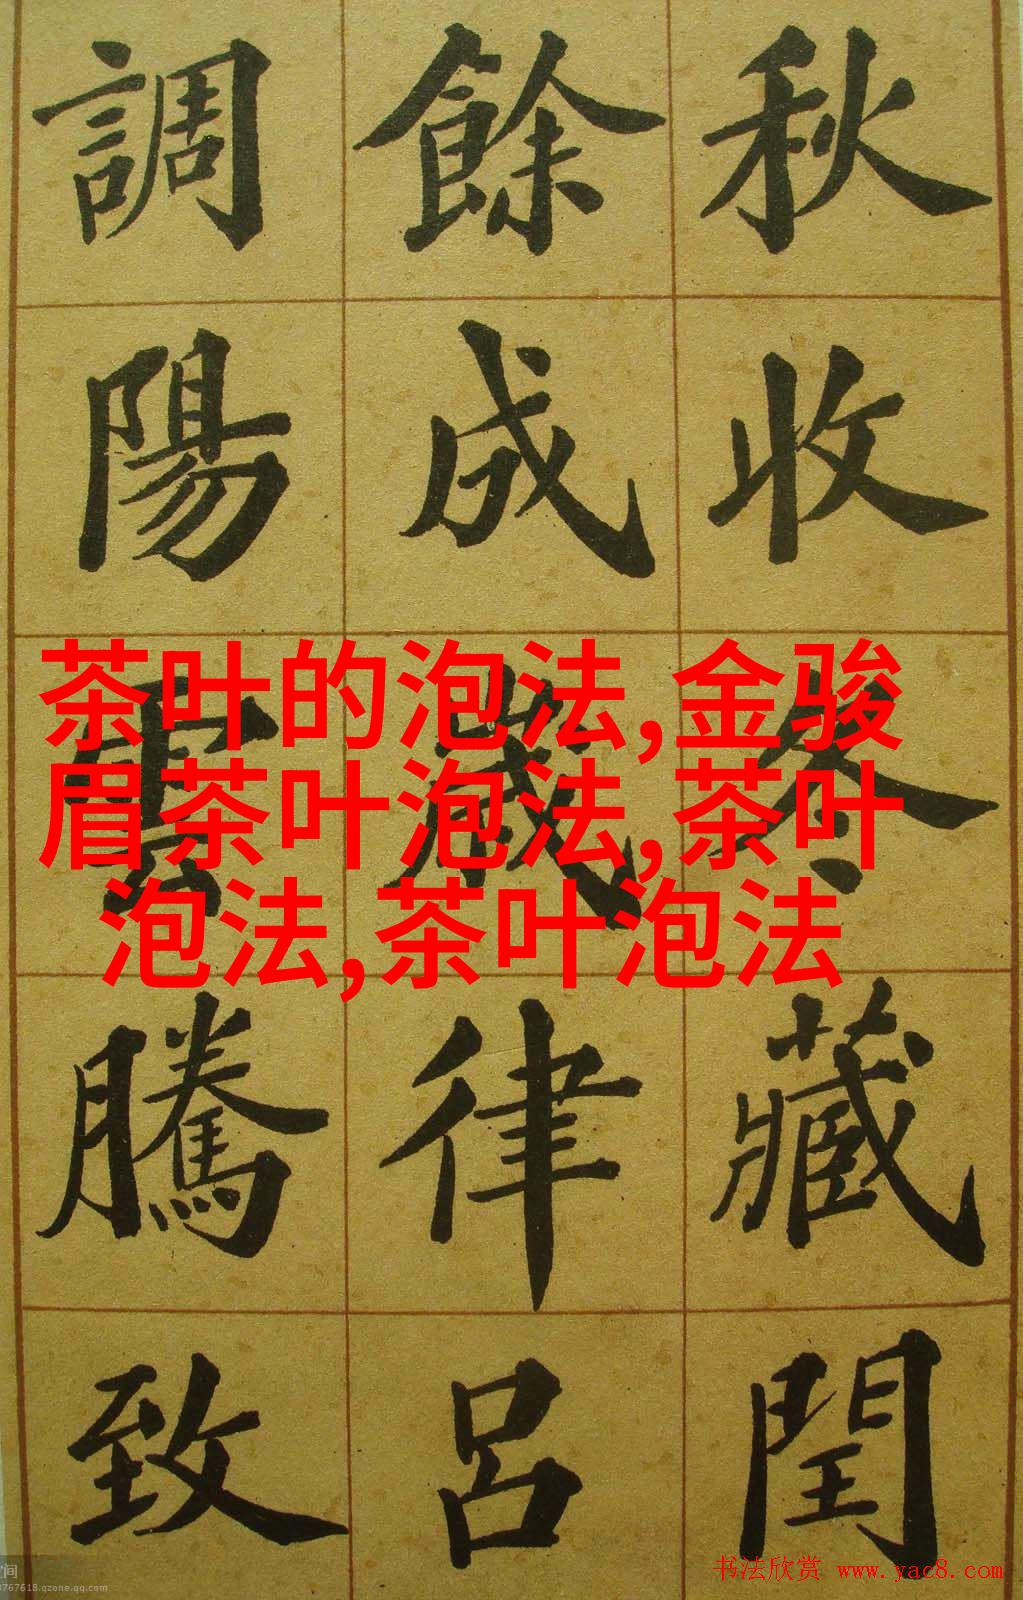 秋收冬藏閏
餘成歲律呂
調陽雲騰致
茶叶的泡法,金骏
眉茶叶泡法,茶叶
泡法,茶叶泡法
书法欣赏 www.yac8.com
空间
3767618.qzone.qq.com